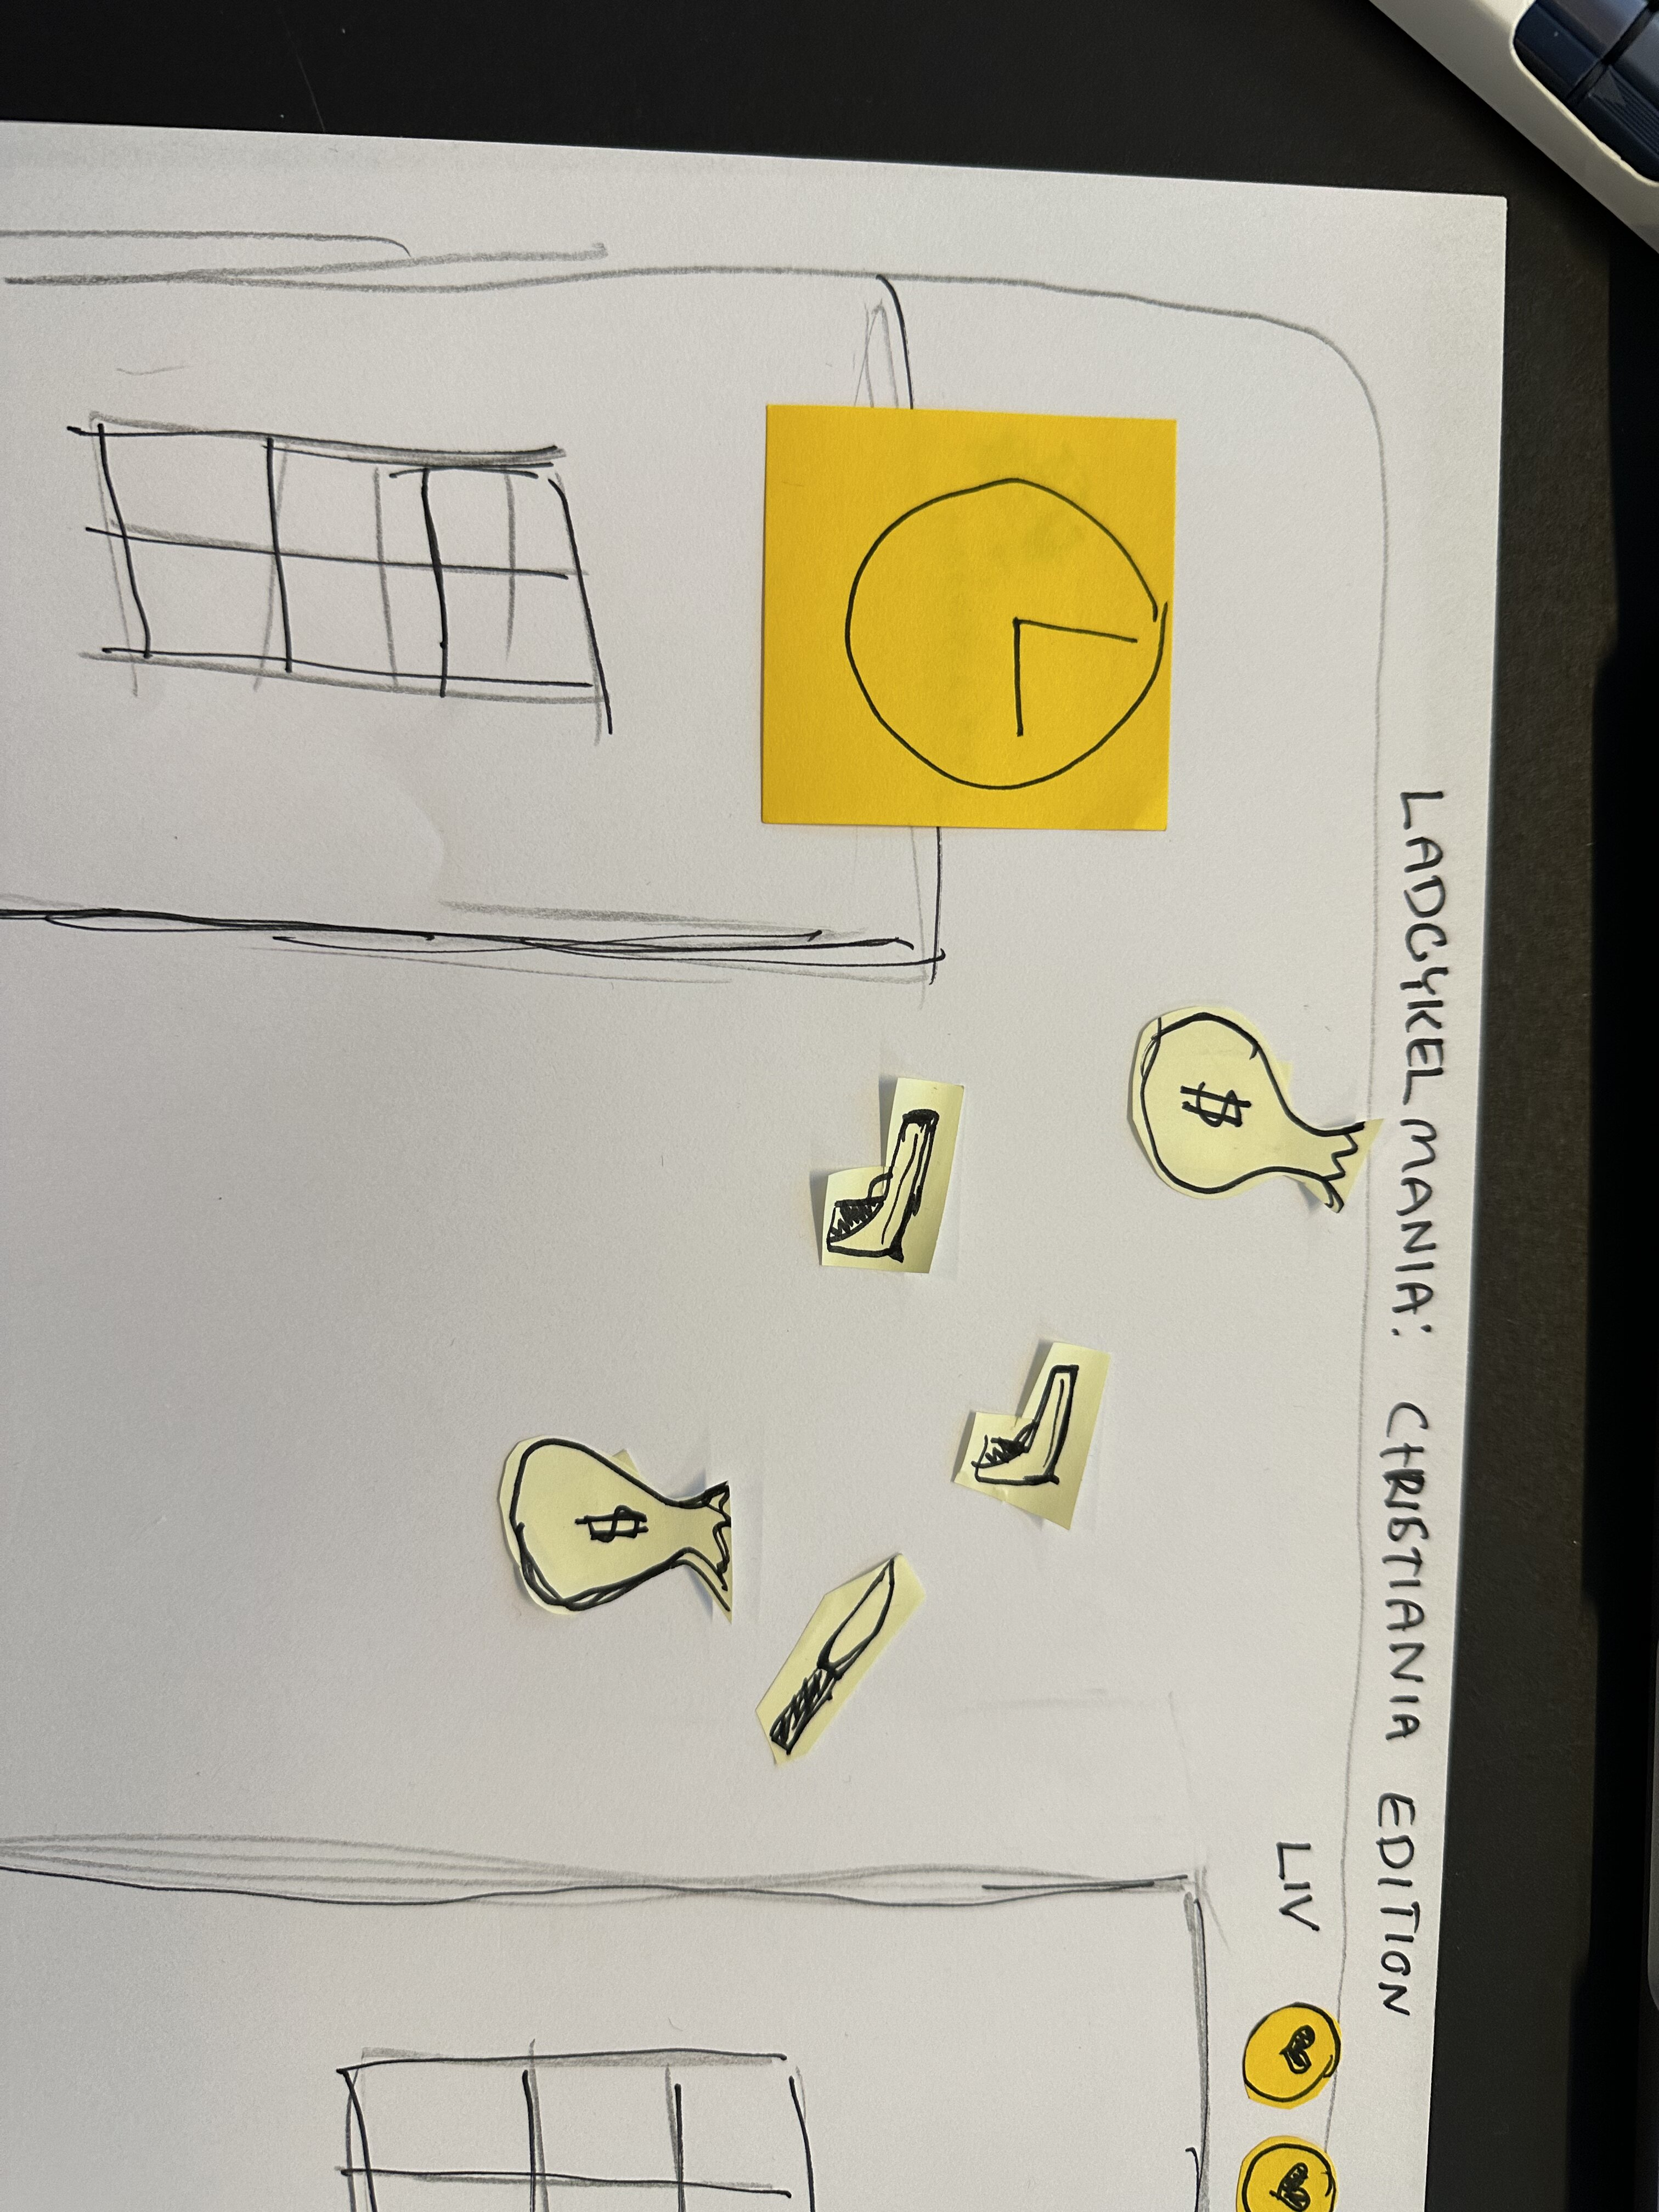 LADCYKEL MANIA: CHRISTIANIA EDITION
LIV
$
$